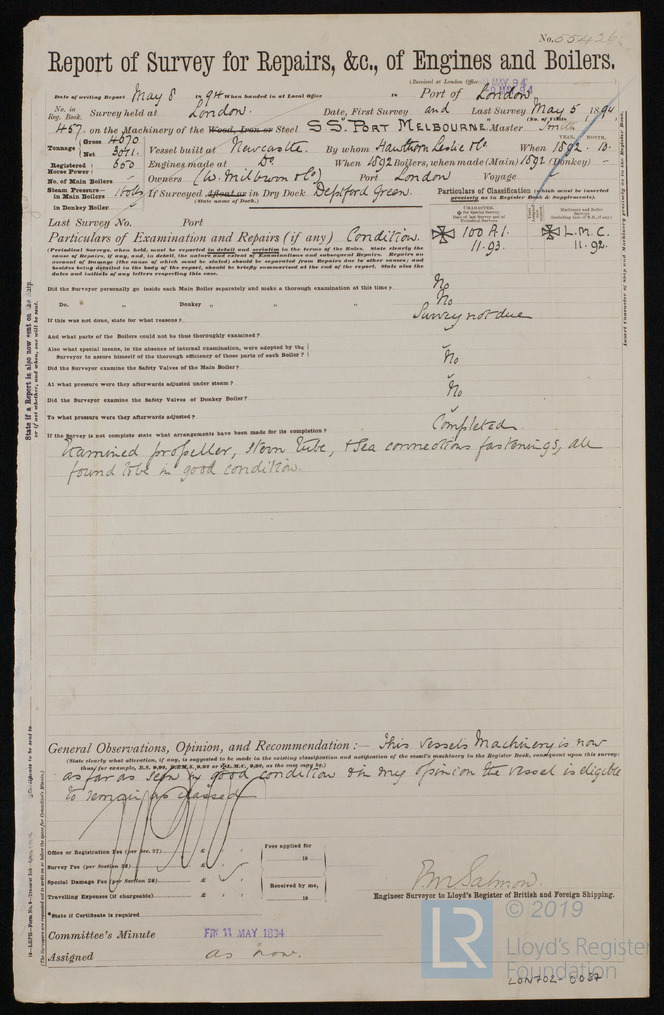 No. 55426
Report of Survey for Repairs, &c., of Engines and Boilers.
(Received at London Office
Date of writing Report May 8 1894 When handed in at Local Office 18 Port of London
No. in Reg. Book. Survey held at London. Date, First Survey and Last Survey May 5 1894
(No. of Visits )
467. on the Machinery of the Wood, Iron or Steel S.S. "Port Melbourne" Master Smith
YEAR. MONTH.
Tonnage Gross 4670 Net 3041 Vessel built at Newcastle By whom Hawthorn Leslie & Co When 1892. 10.
Registered Horse Power 600 Engines made at Do When 1892 Boilers, when made (Main) 1892 (Donkey) -
No. of Main Boilers - Owners (W. Milburn & Co) Port London Voyage
Steam Pressure in Main Boilers 160 lbs If Surveyed Afloat or in Dry Dock Deptford Green.
(State name of Dock.)
in Donkey Boiler
Particulars of Classification (which must be inserted precisely as in Register Book & Supplements).
Last Survey No. Port
CHARACTER.
Machinery and Boiler Surveys
100 A1. L.M.C.
11.93. 11.92.
Particulars of Examination and Repairs (if any) Condition.
(Periodical Surveys, when held, must be reported in detail and seriatim in the terms of the Rules. State clearly the
cause of Repairs, if any, and, in detail, the nature and extent of Examinations and subsequent Repairs. Repairs on
account of Damage (the cause of which must be stated) should be separated from Repairs due to other causes; and
besides being detailed in the body of the report, should be briefly summarised at the end of the report. State also the
dates and initials of any letters respecting this case.
Did the Surveyor personally go inside each Main Boiler separately and make a thorough examination at this time? No
Do. " " Donkey " " " " No
If this was not done, state for what reasons? Survey not due
And what parts of the Boilers could not be thus thoroughly examined?
Also what special means, in the absence of internal examination, were adopted by the
Surveyor to assure himself of the thorough efficiency of those parts of each Boiler?
Did the Surveyor examine the Safety Valves of the Main Boiler? No
At what pressure were they afterwards adjusted under steam?
Did the Surveyor examine the Safety Valves of Donkey Boiler? No
To what pressure were they afterwards adjusted?
If the Survey is not complete state what arrangements have been made for its completion? Completed
Examined propeller, stern tube, & sea connections fastenings, all
found to be in good condition.
General Observations, Opinion, and Recommendation:— This vessels Machinery is now
(State clearly what alteration, if any, is suggested to be made in the existing classification and notification of the vessel's machinery in the Register Book, consequent upon this survey:
as far as seen in good condition & in my opinion the vessel is eligible
to remain as classed
Office or Registration Fee (per Sec. 27) £
Survey Fee (per Section 28) £
Special Damage Fee (per Section 28) £
Travelling Expenses (if chargeable) £
Fees applied for
18
Received by me,
18
*State if Certificate is required
Committee's Minute FRI 11 MAY 1894
Assigned as now.
P. M. Salmon.
Engineer Surveyor to Lloyd's Register of British and Foreign Shipping.
State if a Report is also now sent on the Ship, or if not whether, and when, one will be sent.
LR
© 2019
Lloyd's Register
Foundation
LON702-0037